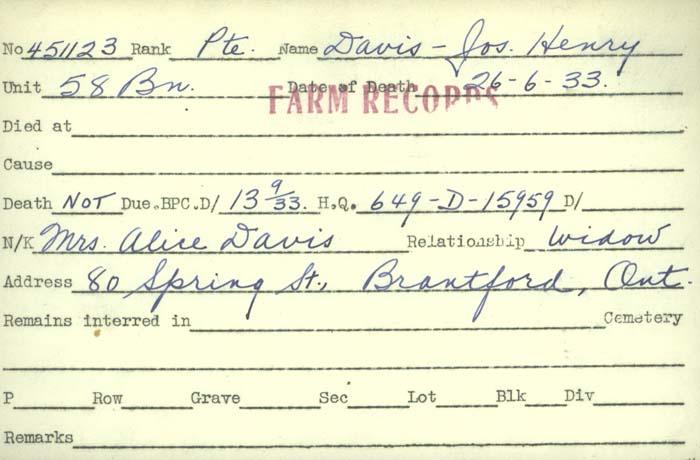 No 451123 Rank Pte. Name Davis - Jos. Henry
Unit 58 Bn. Date of Death 26-6-33.
FARM RECORDS
Died at
Cause
Death NOT Due. BPC. D/ 13 9/33. H.Q. 649-D-15959 D/
N/K Mrs. Alice Davis Relationship Widow
Address 80 Spring St., Brantford, Ont.
Remains interred in Cemetery
P Row Grave Sec Lot Blk Div
Remarks